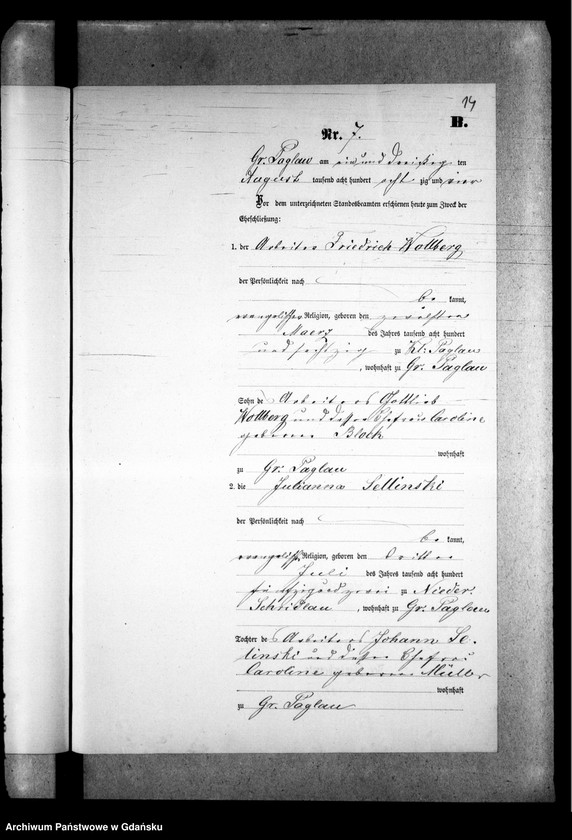 14
B.
Nr. 7.
Gr. Paglau am ein und dreißig ten
August tausend acht hundert acht zig und vier
Vor dem unterzeichneten Standesbeamten erschienen heute zum Zweck der
Eheschließung:
1. der Arbeiter Friedrich Wollberg
der Persönlichkeit nach
be kannt,
evangelischer Religion, geboren den zwölften
Maerz des Jahres tausend acht hundert
und sechszig zu Kl. Paglau
, wohnhaft zu Gr. Paglau
Sohn des Arbeiters Gottlieb
Wollberg und dessen Ehefrau Caroline
geborene Block
wohnhaft
zu Gr. Paglau
2. die Julianna Sellinski
der Persönlichkeit nach
be kannt,
evangelischer Religion, geboren den dritten
Juli des Jahres tausend acht hundert
fünfzig und zwei zu Nieder
Schridlau , wohnhaft zu Gr. Paglau
Tochter des Arbeiters Johann Se-
linski und dessen Ehefrau
Caroline geborene Müller
wohnhaft
zu Gr. Paglau
Archiwum Państwowe w Gdańsku